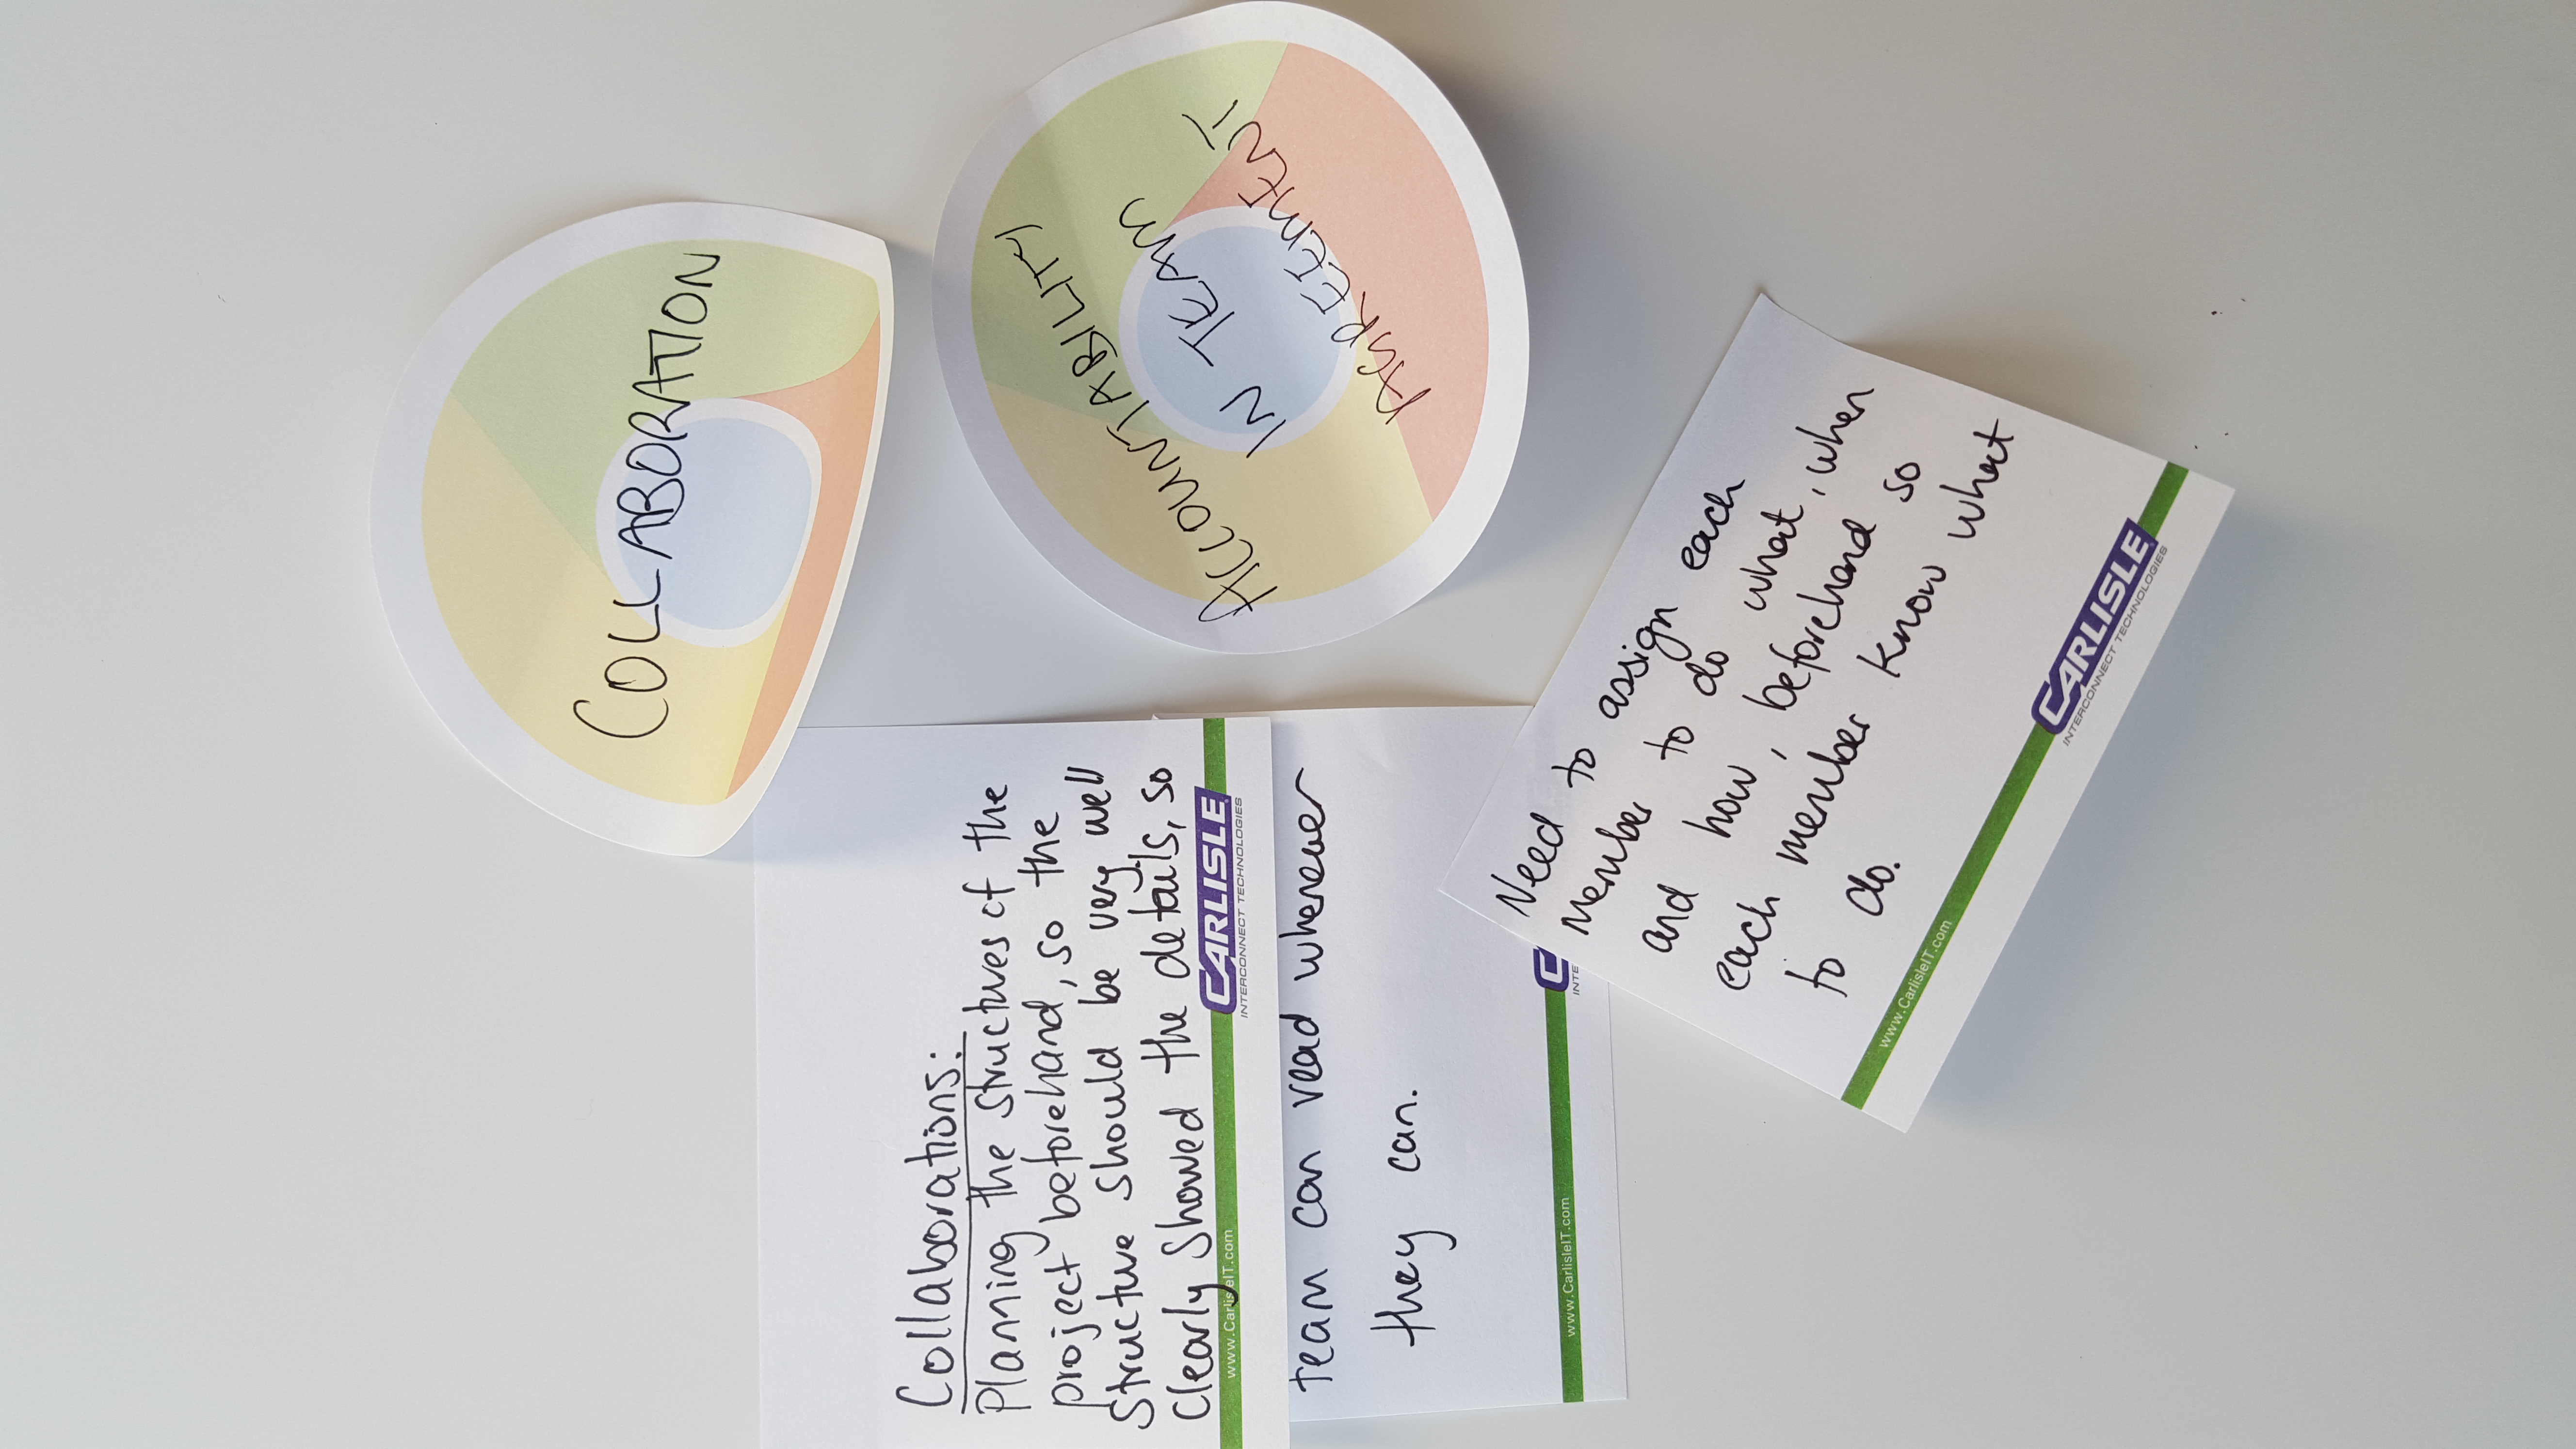 COLLABORATION
Collaborations:
Planning the structures of the
project beforehand, so the
structure should be very well
clearly showed the details, so
www.CarlisleIT.com
CARLISLE
INTERCONNECT TECHNOLOGIES
team can read whenever
they can.
www.CarlisleIT.com
C
INTE
ACCOUNTABILITY
IN TEAM
AGREEMENT
Need to assign each
Member to do what, when
and how, beforehand so
each member know what
to do.
www.CarlisleIT.com
CARLISLE
INTERCONNECT TECHNOLOGIES